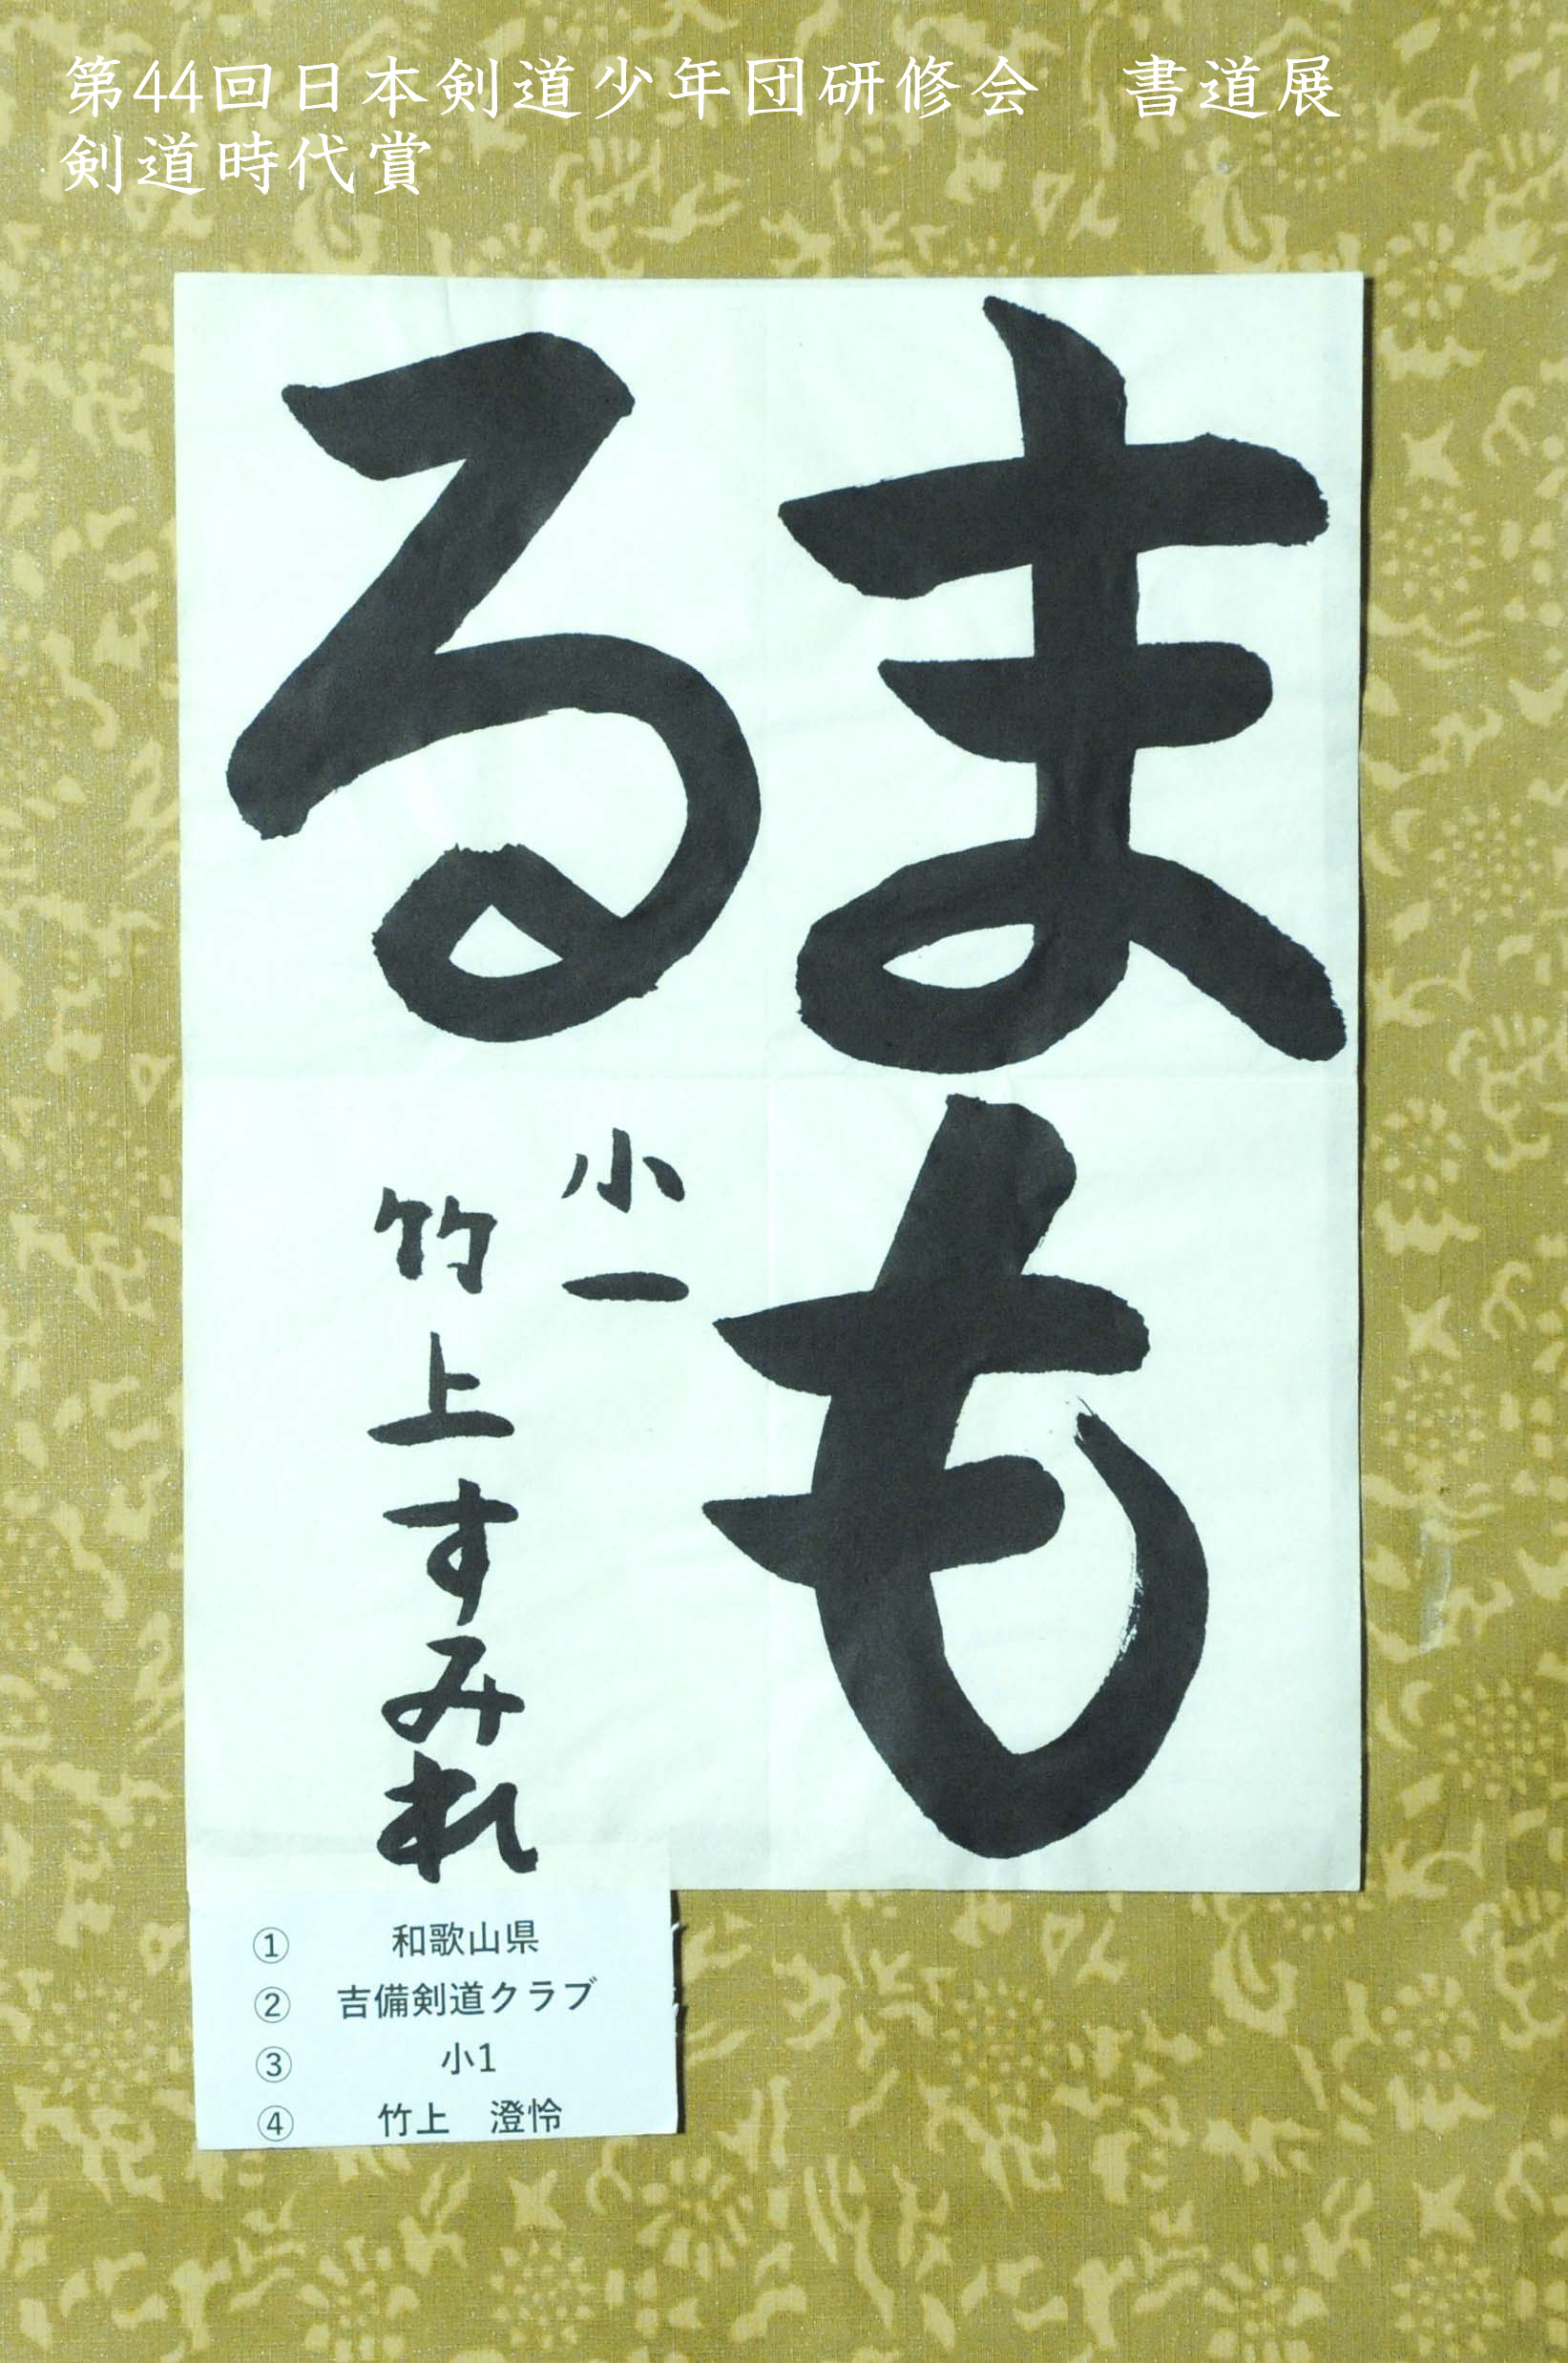 第44回日本剣道少年団研修会　書道展
剣道時代賞
まも
る
小一
竹上すみれ
① 和歌山県
② 吉備剣道クラブ
③ 小1
④ 竹上　澄怜